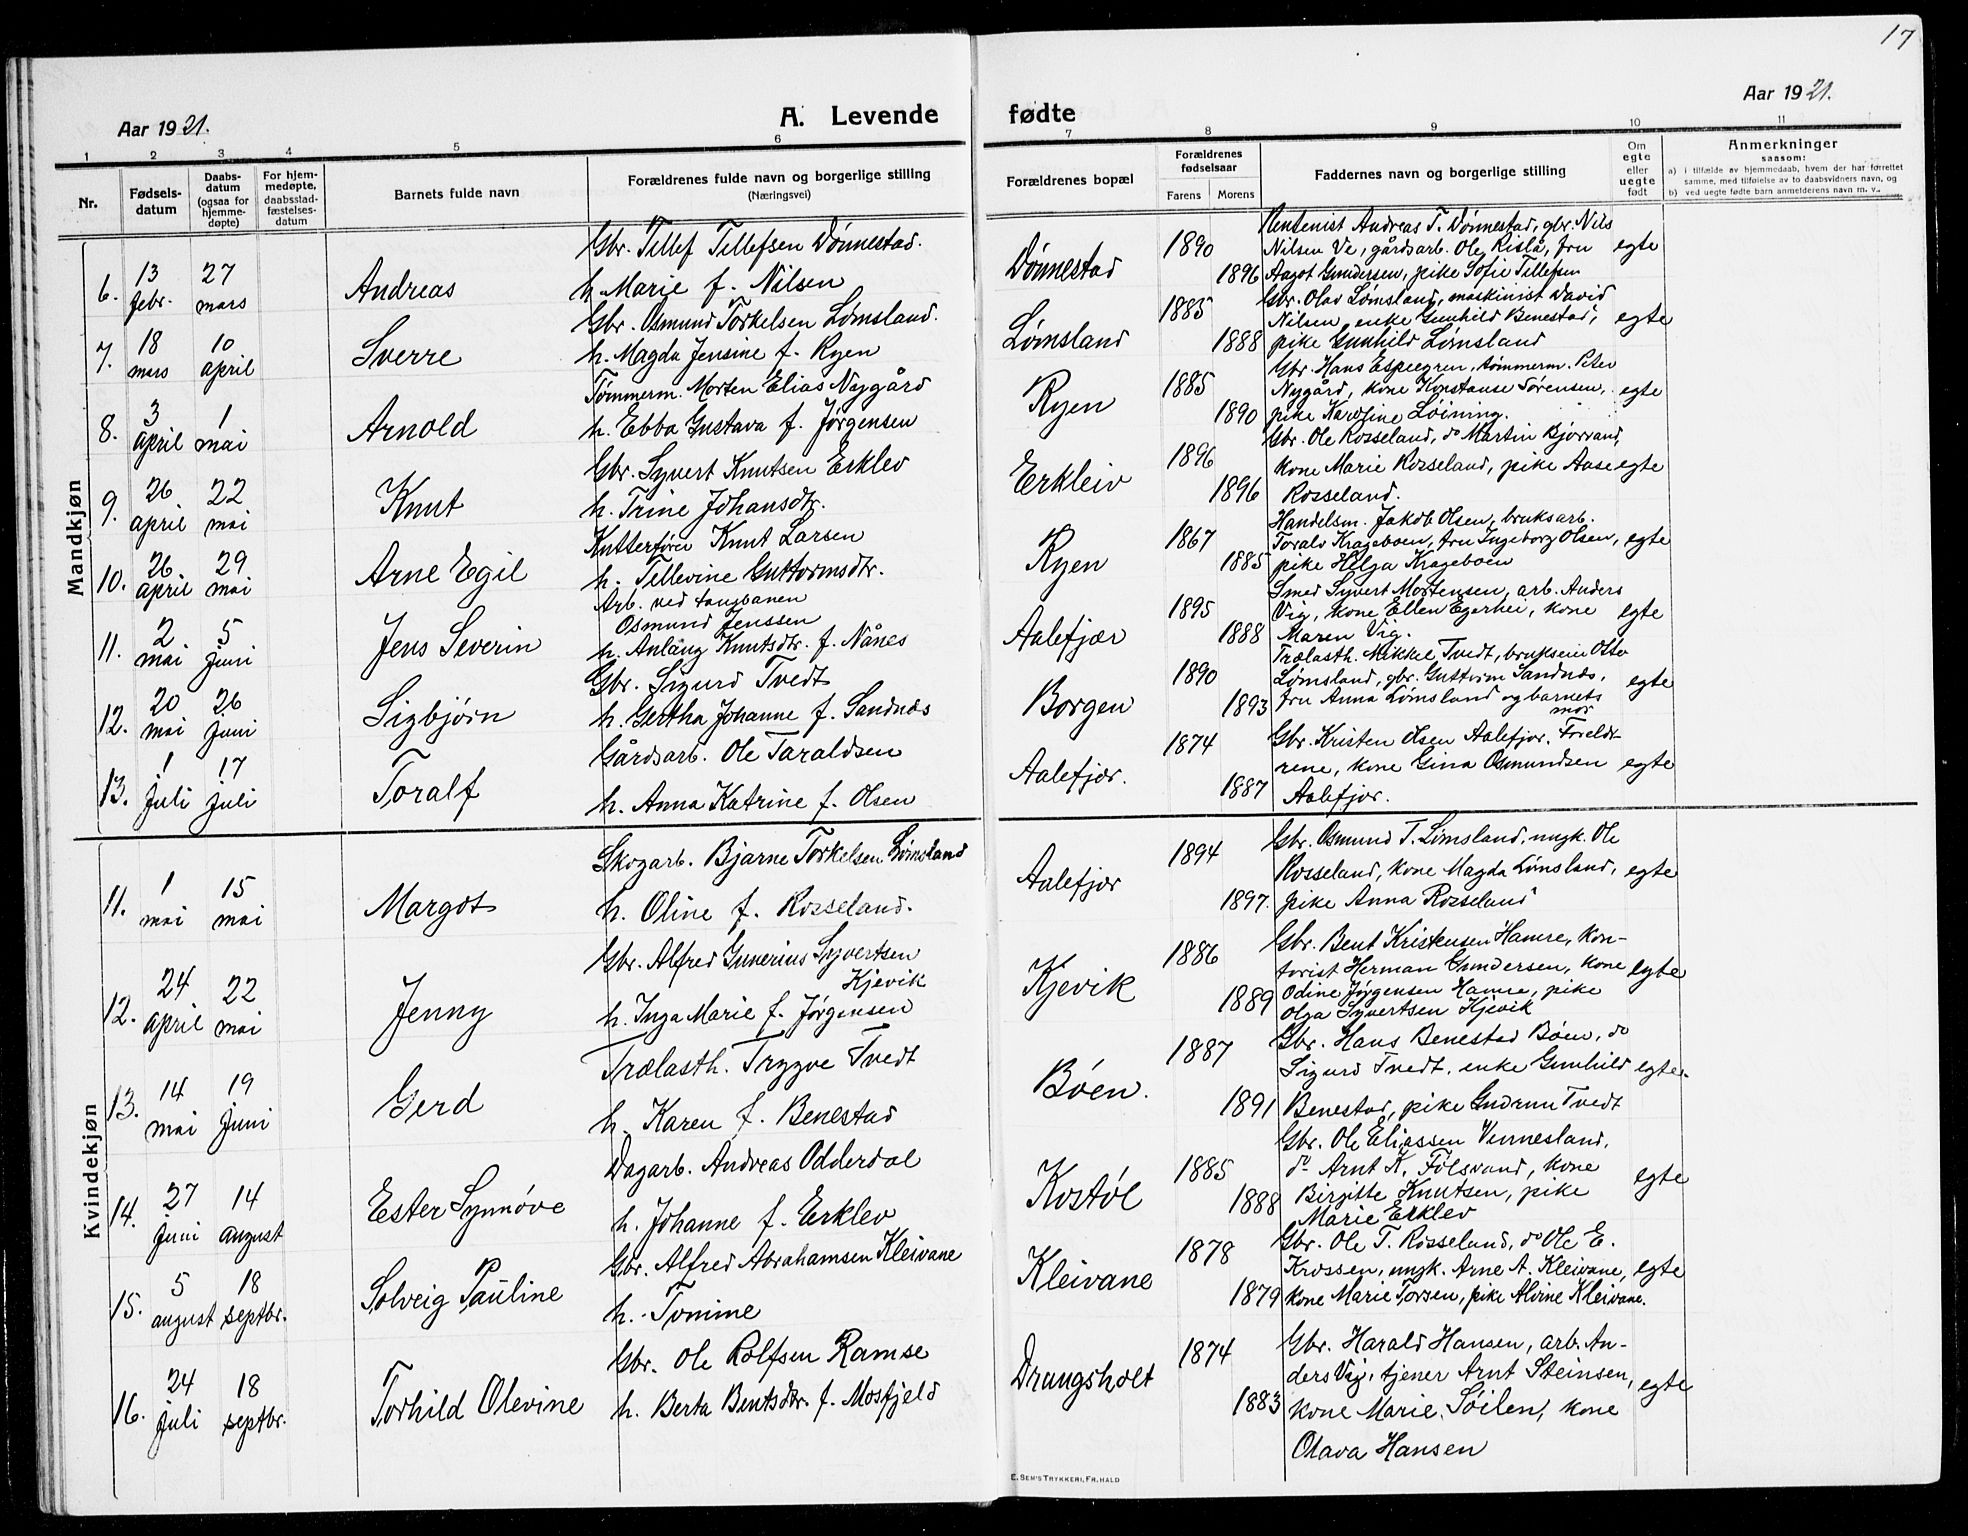 17
Aar 1921.
A. Levende fødte
Aar 1921.
1 2 3 4 5 6 7 8 9 10 11
Nr.
Fødsels-
datum
Daabs-
datum
(ogsaa for
hjemme-
døpte)
For hjem-
medøpte,
daabsstad-
fæstelses-
datum
Barnets fulde navn
Forældrenes fulde navn og borgerlige stilling
(Næringsvei)
Forældrenes bopæl
Forældrenes
fødselsaar
Farens Morens
Faddernes navn og borgerlige stilling
Om
egte
eller
uegte
født
Anmerkninger
saasom:
a) i tilfælde av hjemmedaab, hvem der har forrettet
samme, med tilføielse av to daabsvidners navn, og
b) ved uegte fødte barn anmelderens navn m. v.
Mandkjøn
6. 13 febr. 27 mars Andreas
Gbr. Tillef Tillefsen Dønnestad.
h. Marie f. Nilsen
Dønnestad 1890 1896
Rentenist Andreas T. Dønnestad, gbr. Nils
Nilsen Ve, gårdsarb. Ole Rislå, fru
Aagot Gundersen, pike Sofie Tillefsen
egte
7. 18 mars 10 april Sverre
Gbr. Osmund Torkelsen Lømsland.
h. Magda Jensine f. Ryen
Lømsland 1885 1888
Gbr. Olav Lømsland, maskinist David
Nilsen, enke Gunhild Benestad,
pike Gunhild Lømsland
egte
8. 3 april 1 mai Arnold
Tømmerm. Morten Elias Nygård
h. Ebba Gustava f. Jørgensen
Ryen 1885 1890
Gbr. Hans Espegren, tømmerm. Peter
Nygård, kone Konstanse Sørensen,
pike Karoline Løining.
egte
9. 26 april 22 mai Knut
Gbr. Syvert Knutsen Erklev
h. Trine Johansdtr.
Erkleiv 1896 1896
Gbr. Ole Rosseland, do Martin Bjorvand,
kone Marie Rosseland, pike Aase
Rosseland.
egte
10. 26 april 29 mai Arne Egil
Kutterfører Knut Larsen
h. Tellevine Guttormsdtr.
Ryen 1867 1885
Handelsm. Jakob Olsen, bruksarb.
Toralv Krageboen, fru Ingeborg Olsen,
pike Helga Krageboen
egte
11. 2 mai 5 juni Jens Severin
Arb. ved tangbanen
Osmund Jenssen
h. Anlaug Knutsdtr. f. Nånes
Aalefjær 1895 1888
Smed Syvert Mortensen, arb. Anders
Vig, kone Ellen Egerhei, kone
Maren Vig.
egte
12. 20 mai 26 juni Sigbjørn
Gbr. Sigurd Tvedt
h. Gertha Johanne f. Sandnes
Borgen 1890 1893
Trælasth. Mikkel Tvedt, brukseier Otto
Lømsland, gbr. Guttorm Sandnes,
fru Anna Lømsland og barnets
mor
egte
13. 1 juli 17 juli Toralf
Gårdsarb. Ole Taraldsen
h. Anna Katrine f. Olsen
Aalefjær. 1874 1887
Gbr. Kristen Olsen Aalefjær. Foreldr-
rene, kone Gina Osmundsen
Aalefjær.
egte
Kvindekjøn
11. 1 mai 15 mai Margot
Skogarb. Bjarne Torkelsen Lømsland
h. Oline f. Rosseland.
Aalefjær 1894 1897.
Gbr. Osmund T. Lømsland, ungk. Ole
Rosseland, kone Magda Lømsland,
pike Anna Rosseland
egte
12. 24 april 22 mai Jenny
Gbr. Alfred Gunerius Syvertsen
Kjevik
h. Inga Marie f. Jørgensen
Kjevik 1886 1889
Gbr. Bent Kristensen Hamre, kon-
torist Herman Gundersen, kone
Odine Jørgensen Hamre, pike
Olga Syvertsen Kjevik
egte
13. 14 mai 19 juni Gerd
Trælasth. Trygve Tvedt
h. Karen f. Benestad
Bøen. 1887 1891
Gbr. Hans Benestad Bøen, do
Sigurd Tvedt, enke Gunhild
Benestad, pike Gudrun Tvedt
egte.
14. 27 juni 14 august Ester Synnøve
Dagarb. Andreas Odderdal
h. Johanne f. Erklev
Kostøl 1885 1888
Gbr. Ole Eliassen Vinnesland,
do Arnt K. Følsvand, kone
Birgitte Knutsen, pike
Marie Erklev
egte
15. 5 august 18 septbr. Solveig Pauline
Gbr. Alfred Abrahamsen Kleivane
h. Tomine
Kleivane 1878 1879
Gbr. Ole T. Rosseland, do Ole E.
Krossen, ungk. Arne A. Kleivane,
kone Marie Torsen, pike Alvine Kleivane.
egte
16. 24 juli 18 septbr. Torhild Olevine
Gbr. Ole Rolfsen Ramse
h. Berta Bentsdtr. f. Mosfjeld
Drangsholt 1874 1883
Gbr. Harald Hansen, arb. An-
ders Vig, tjener Arnt Steinsen,
kone Marie Søilen, kone
Olava Hansen
egte
E. SEM'S TRYKKERI, FR.HALD